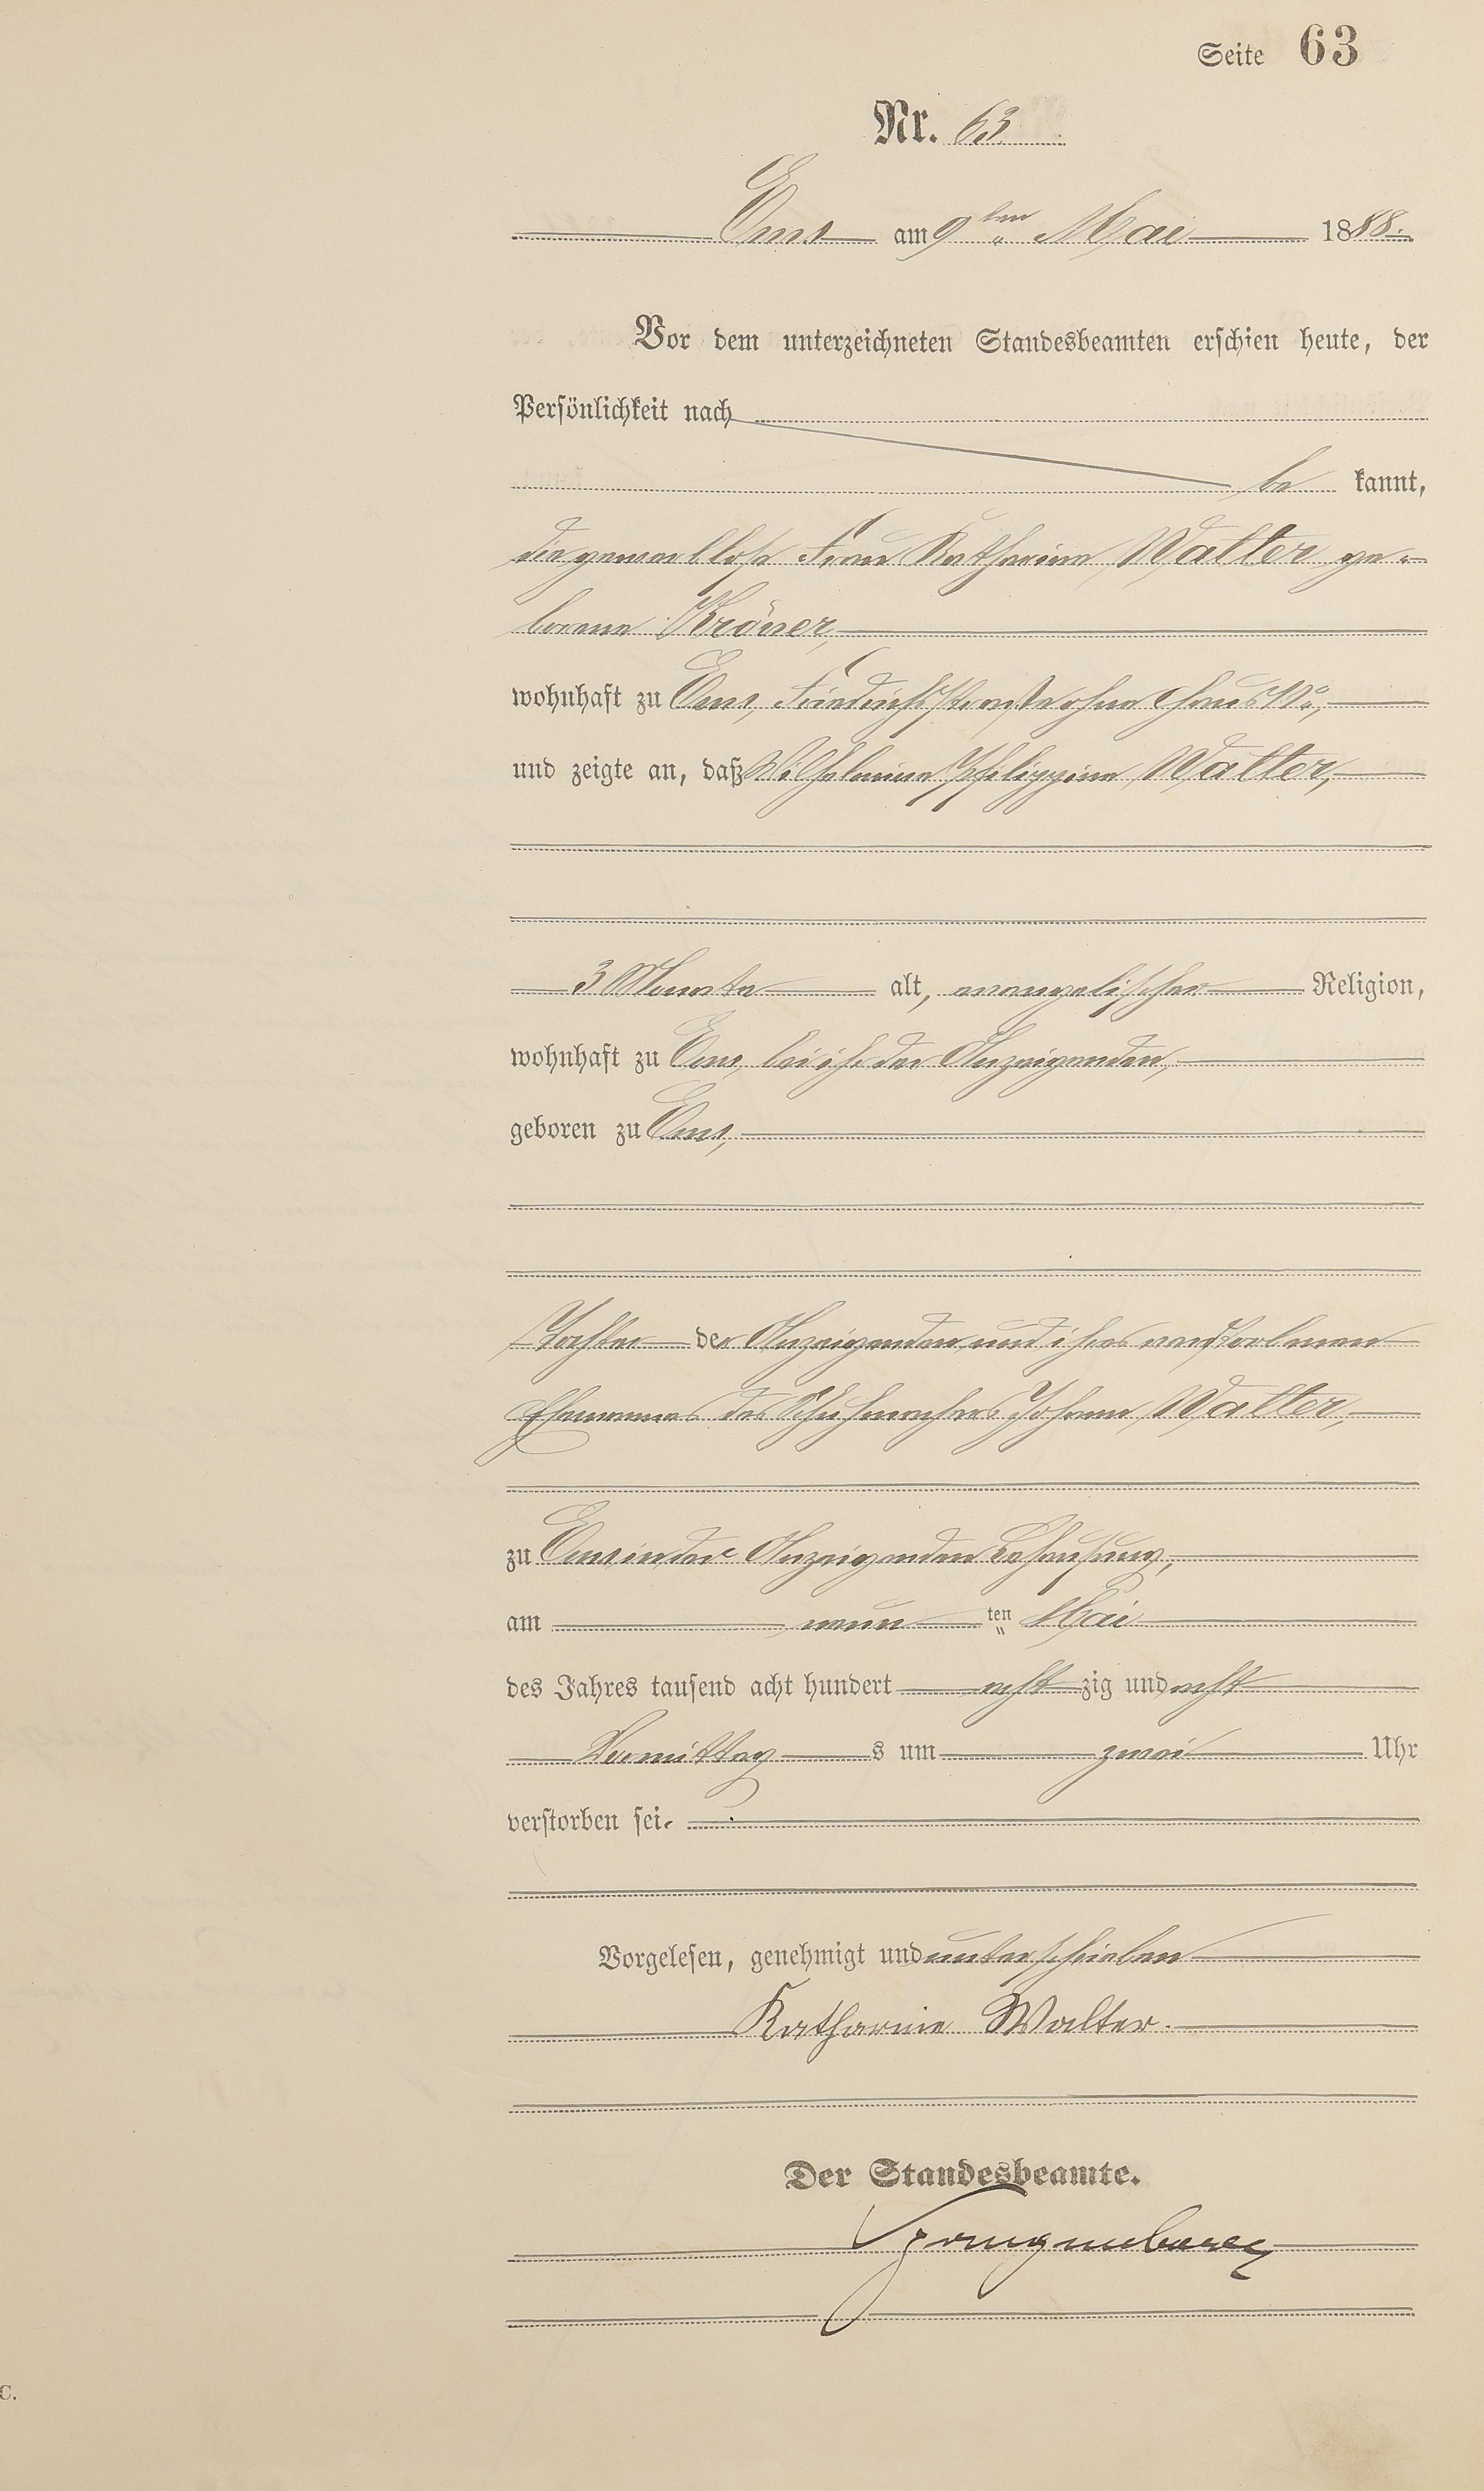 Seite 63
Nr. 63.
Ems am 9ten Mai 1888.
Vor dem unterzeichneten Standesbeamten erschien heute, der
Persönlichkeit nach
be kannt,
die gewerblose Frau Katharine Walter ge-
borene Kröner,
wohnhaft zu Ems, Friedrichsstraße ohne Haus No,
und zeigte an, daß Wilhelmine Philippine Walter,
3 Monate alt, evangelischer Religion,
wohnhaft zu Ems, bei ihr der Anzeigenden,
geboren zu Ems,
Tochter der Anzeigenden und ihres verstorbenen
Ehemannes des Schuhmachers Johann Walter,
zu Ems in der Anzeigenden Behausung,
am neun ten Mai
des Jahres tausend acht hundert acht zig und acht
Vormittag s um zwei Uhr
verstorben sei.
Vorgelesen, genehmigt und unterschrieben
Katharine Walter.
Der Standesbeamte.
C.